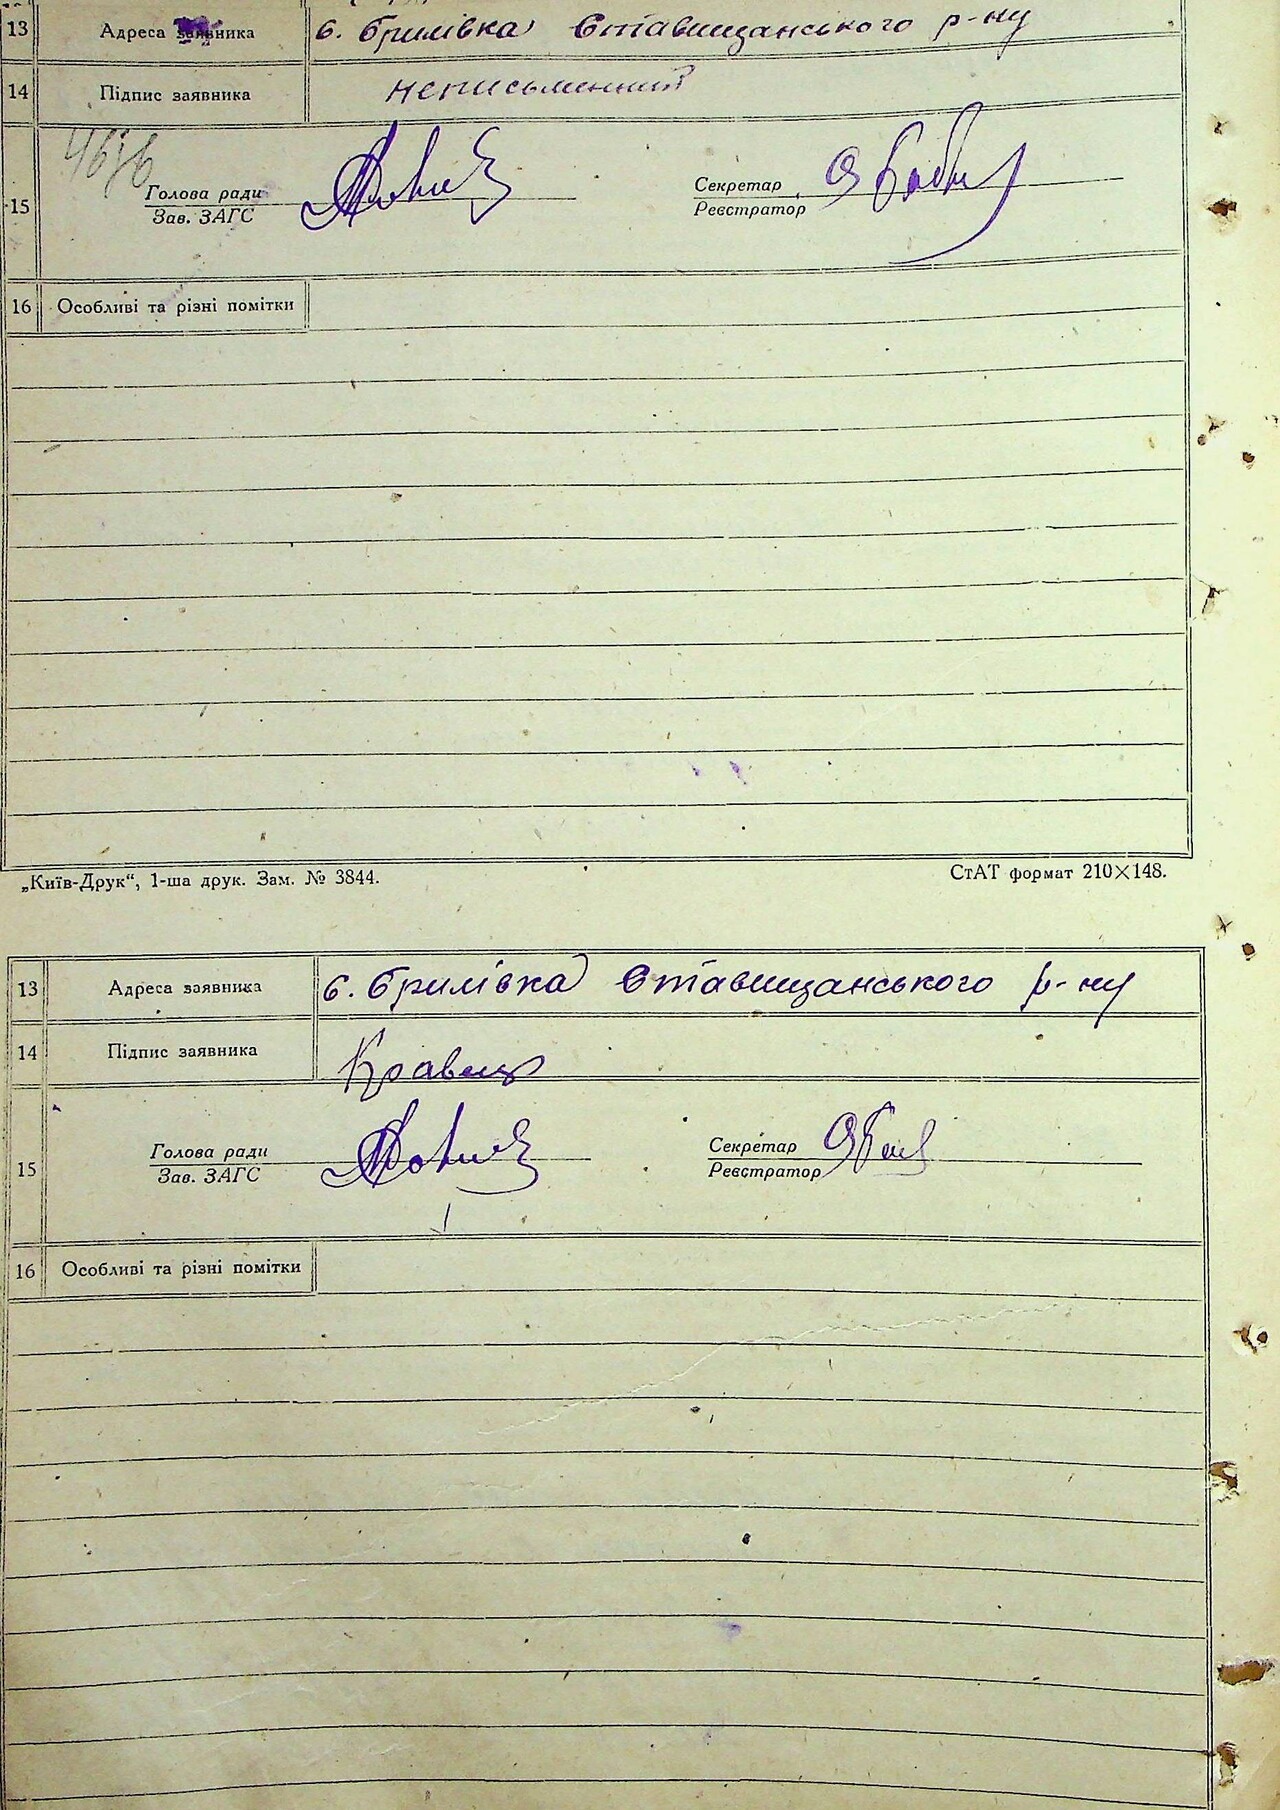 13 Адреса заявника с. Гримівка Ставищанського р-ну
14 Підпис заявника неписьменний
15 Голова ради Секретар
Зав. ЗАГС Реєстратор
16 Особливі та різні помітки
„Київ-Друк“, 1-ша друк. Зам. № 3844. СтАТ формат 210×148.
13 Адреса заявника с. Гримівка Ставищанського р-ну
14 Підпис заявника Кравець
15 Голова ради Секретар
Зав. ЗАГС Реєстратор
16 Особливі та різні помітки